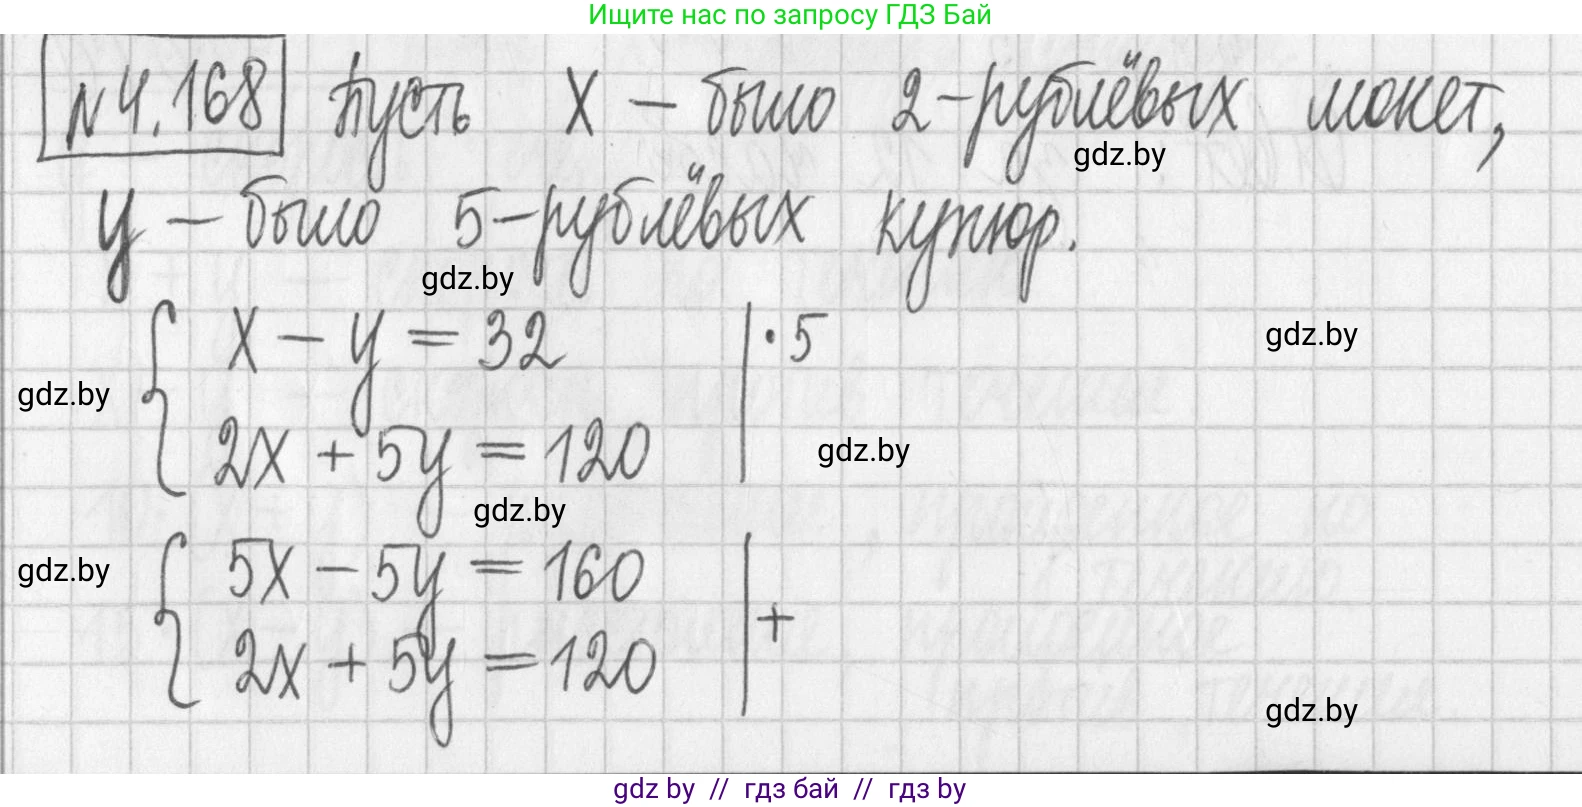 Ищите нас по запросу ГДЗ Бай
№4.168 Пусть x – было 2-рублёвых монет,
gdz.by
y – было 5-рублёвых купюр.
gdz.by
x – y = 32 | · 5
gdz.by
gdz.by
2x + 5y = 120
gdz.by
gdz.by
5x – 5y = 160 | +
gdz.by
2x + 5y = 120
gdz.by
gdz by // гдз бай // гдз by